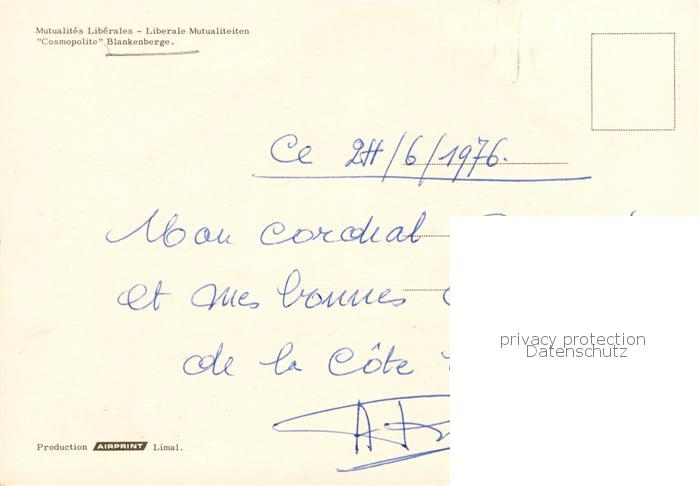 Mutualités Libérales - Liberale Mutualiteiten
"Cosmopolite" Blankenberge.
Ce 24/6/1976.
Mon cordial
et mes bonnes
de la Côte
privacy protection
Datenschutz
Production AIRPRINT Limal.